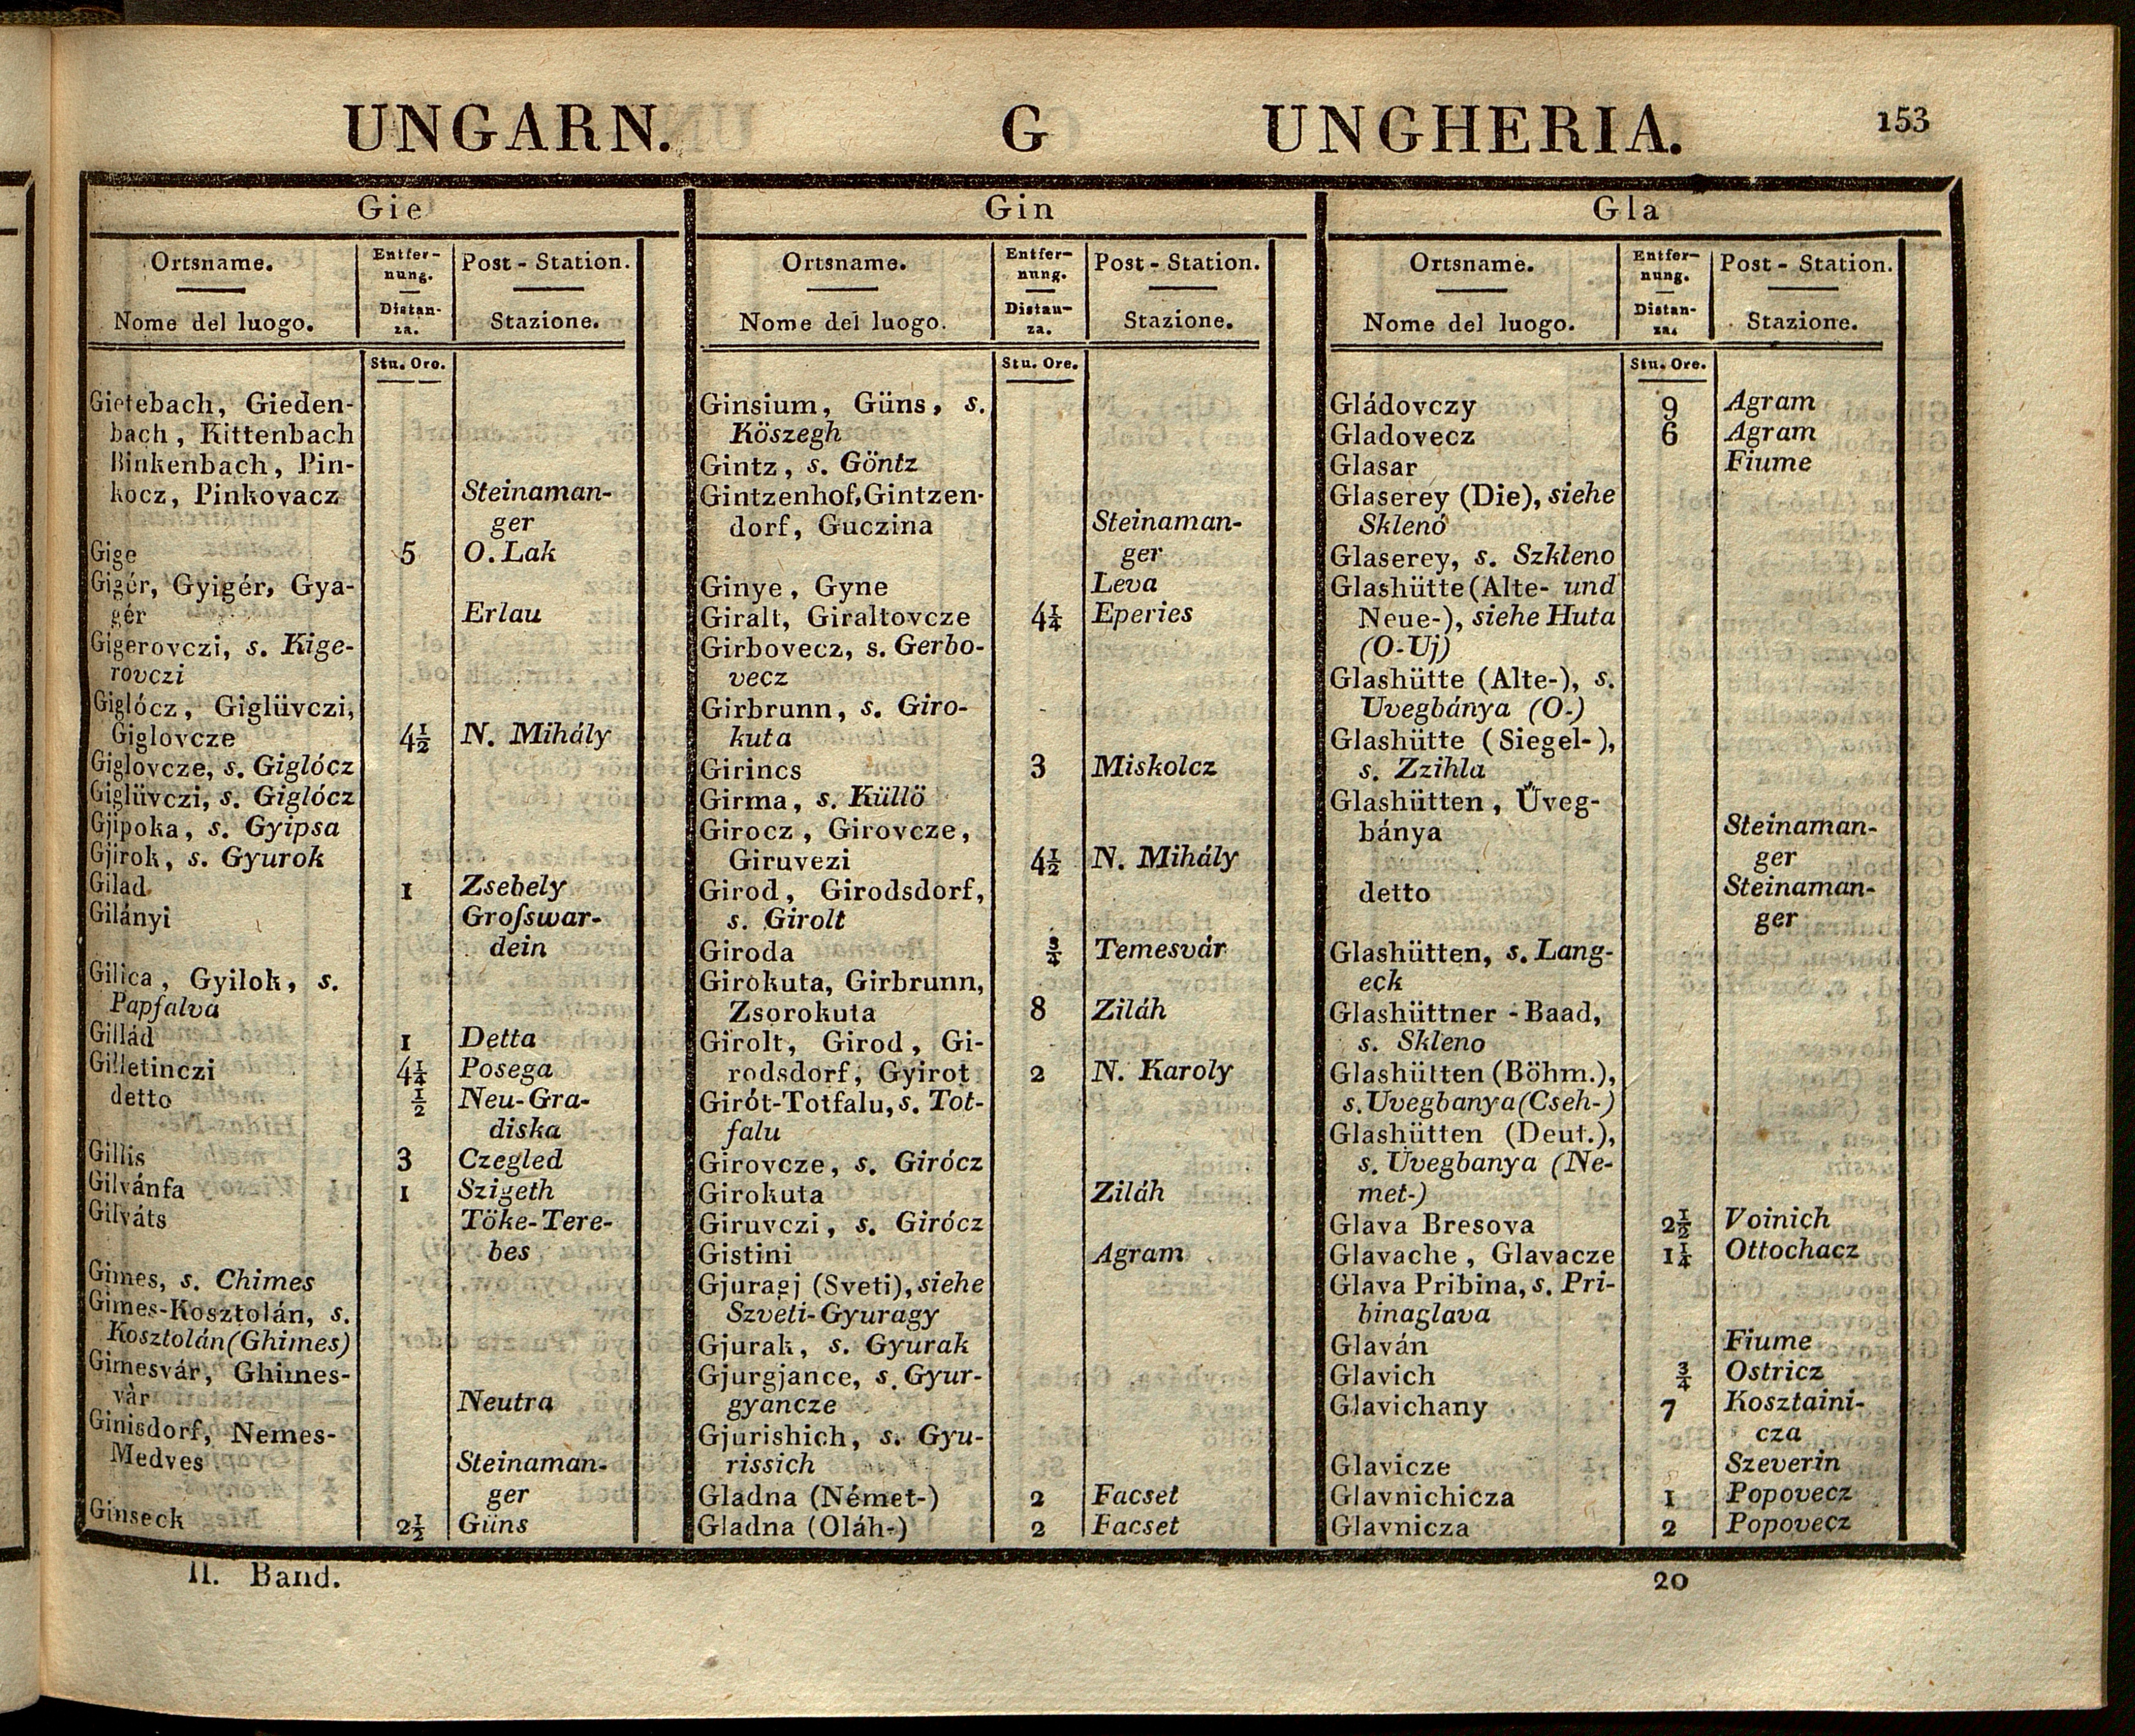 UNGARN. G UNGHERIA. 153
Gie
Ortsname. Entfer- Post-Station.
nung.
Distan-
Nome del luogo. za. Stazione.
Stu. Ore.
Gietebach, Gieden-
bach, Kittenbach
Binkenbach, Pin-
kocz, Pinkovacz Steinaman-
ger
Gige 5 O. Lak
Gigér, Gyigér, Gya-
gér Erlau
Gigerovczi, s. Kige-
rovczi
Giglócz, Giglüvczi,
Giglovcze 4½ N. Mihály
Giglovcze, s. Giglócz
Giglüvczi, s. Giglócz
Gjipoka, s. Gyipsa
Gjirok, s. Gyurok
Gilad 1 Zsebely
Gilányi Groſswar-
dein
Gilica, Gyilok, s.
Papfalva
Gillád 1 Detta
Gilletinczi 4¼ Posega
detto ½ Neu-Gra-
diska
Gillis 3 Czegled
Gilvánfa 1 Szigeth
Gilváts Töke-Tere-
bes
Gimes, s. Chimes
Gimes-Kosztolán, s.
Kosztolán (Ghimes)
Gimesvár, Ghimes-
vàr Neutra
Ginisdorf, Nemes-
Medves Steinaman-
ger
Ginseck 2½ Güns
Gin
Ortsname. Entfer- Post-Station.
nung.
Distan-
Nome del luogo. za. Stazione.
Stu. Ore.
Ginsium, Güns, s.
Köszegh
Gintz, s. Göntz
Gintzenhof, Gintzen-
dorf, Guczina Steinaman-
ger
Ginye, Gyne Leva
Giralt, Giraltovcze 4¼ Eperies
Girbovecz, s. Gerbo-
vecz
Girbrunn, s. Giro-
kuta
Girincs 3 Miskolcz
Girma, s. Küllö
Girocz, Girovcze,
Giruvezi 4½ N. Mihály
Girod, Girodsdorf,
s. Girolt
Giroda ¾ Temesvár
Girokuta, Girbrunn,
Zsorokuta 8 Ziláh
Girolt, Girod, Gi-
rodsdorf, Gyirot 2 N. Karoly
Girót-Totfalu, s. Tot-
falu
Girovcze, s. Girócz
Girokuta Ziláh
Giruvczi, s. Girócz
Gistini Agram
Gjuragj (Sveti), siehe
Szveti-Gyuragy
Gjurak, s. Gyurak
Gjurgjance, s. Gyur-
gyancze
Gjurishich, s. Gyu-
rissich
Gladna (Német-) 2 Facset
Gladna (Oláh-) 2 Facset
Gla
Ortsname. Entfer- Post-Station.
nung.
Distan-
Nome del luogo. za. Stazione.
Stu. Ore.
Gládovczy 9 Agram
Gladovecz 6 Agram
Glasar Fiume
Glaserey (Die), siehe
Sklenó
Glaserey, s. Szkleno
Glashütte (Alte- und
Neue-), siehe Huta
(O-Uj)
Glashütte (Alte-), s.
Uvegbánya (O-)
Glashütte (Siegel-),
s. Zzihla
Glashütten, Üveg-
bánya Steinaman-
ger
detto Steinaman-
ger
Glashütten, s. Lang-
eck
Glashüttner-Baad,
s. Skleno
Glashütten (Böhm.),
s. Uvegbanya (Cseh-)
Glashütten (Deut.),
s. Uvegbanya (Ne-
met-)
Glava Bresova 2½ Voinich
Glavache, Glavacze 1¼ Ottochacz
Glava Pribina, s. Pri-
binaglava
Glaván Fiume
Glavich ¾ Ostricz
Glavichany 7 Kosztaini-
cza
Glavicze Szeverin
Glavnichicza 1 Popovecz
Glavnicza 2 Popovecz
II. Band. 20